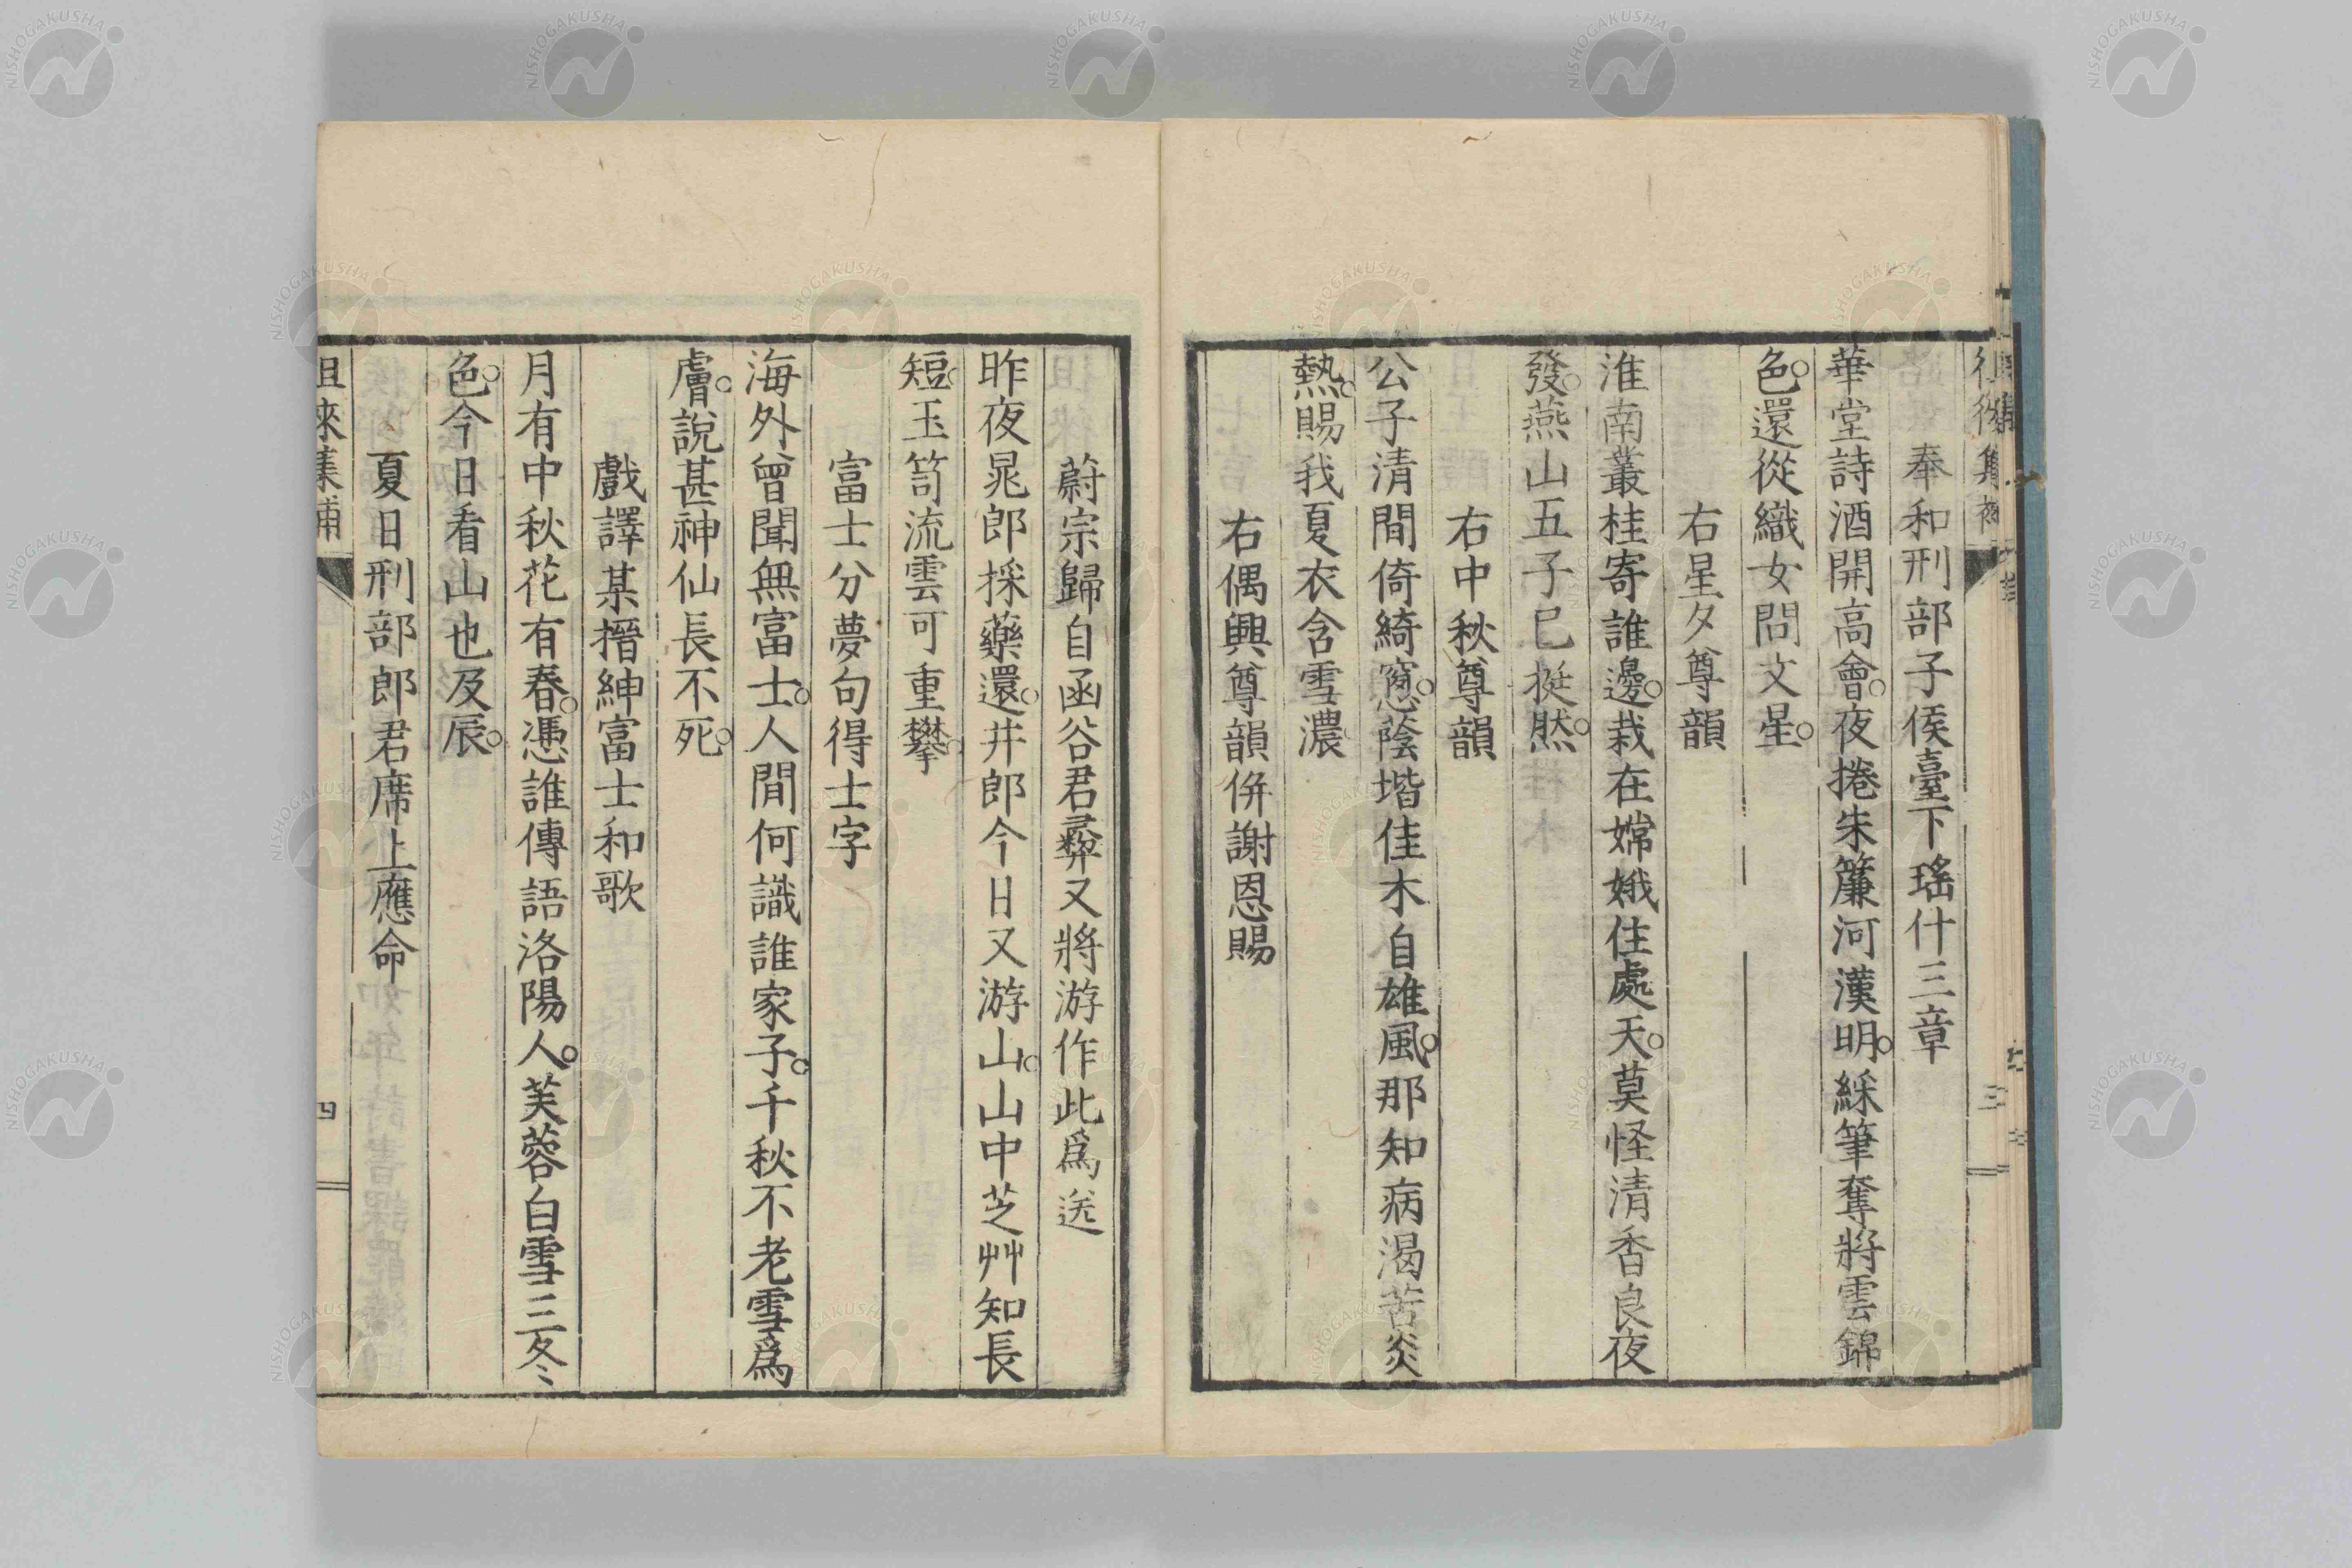 奉和刑部子侯臺下瑤什三章
華堂詩酒開高會。夜捲朱簾河漢明。綵筆奪將雲錦
色。還從織女問文星。
右星夕尊韻
淮南叢桂寄誰邊。栽在嫦娥住處天。莫怪清香良夜
發。燕山五子已挺然。
右中秋尊韻
公子清間倚綺窻。蔭堦佳木自雄風。那知病渴苦炎
熱。賜我夏衣含雪濃
右偶興尊韻併謝恩賜
三
蔚宗歸自函谷君彜又將游作此爲送
昨夜晁郎採藥還。井郎今日又游山。山中芝艸知長
短。玉笥流雲可重攀。
富士分夢句得士字
海外曾聞無富士。人間何識誰家子。千秋不老雪爲
膚。說甚神仙長不死。
戲譯某搢紳富士和歌
月有中秋花有春。憑誰傳語洛陽人。芙蓉白雪三冬
色。今日看山也及辰。
夏日刑部郎君席上應命
徂徠集補
四
NISHOGAKUSHA